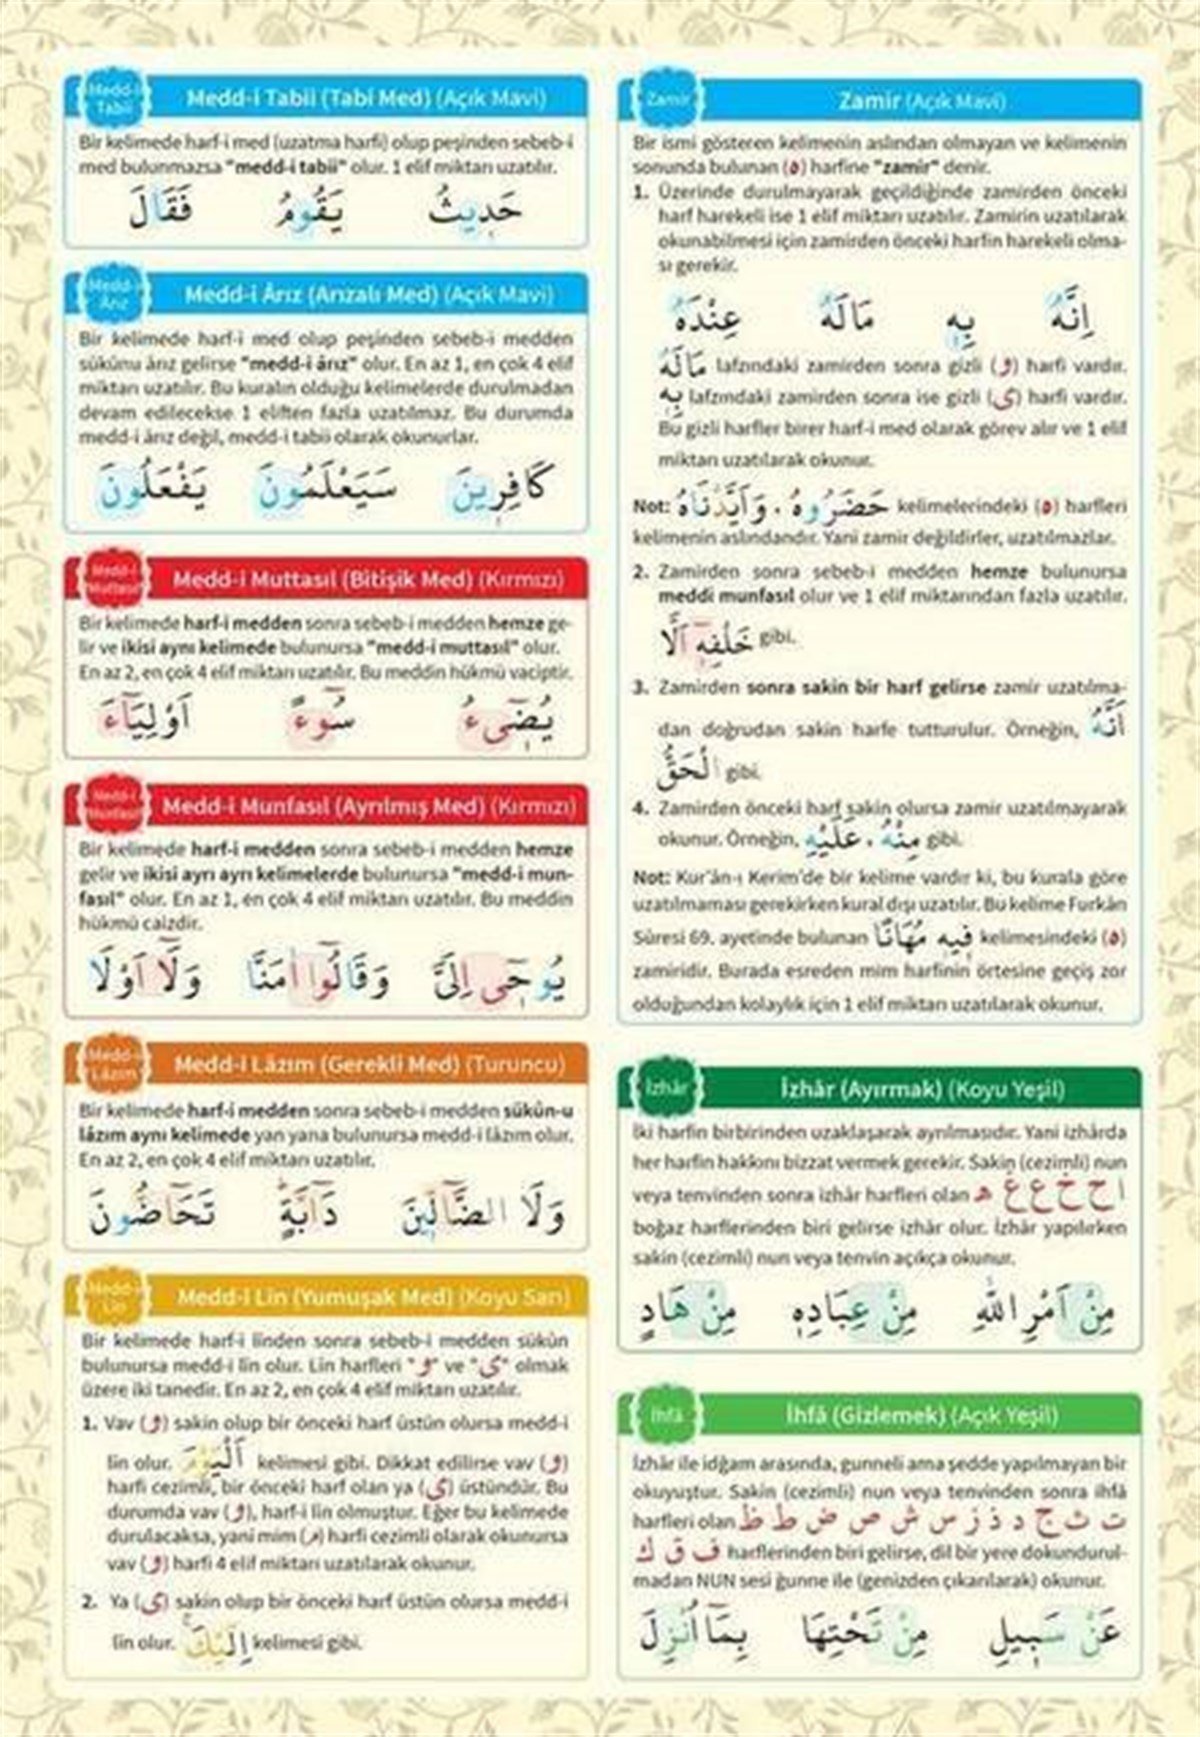 Medd-i
Tabii
Medd-i Tabii (Tabi Med) (Açık Mavi)
Bir kelimede harf-i med (uzatma harfi) olup peşinden sebeb-i
med bulunmazsa "medd-i tabii" olur. 1 elif miktarı uzatılır.
حَدِيثُ يَقُومُ فَقَالَ
Medd-i
Ârız
Medd-i Ârız (Arızalı Med) (Açık Mavi)
Bir kelimede harf-i med olup peşinden sebeb-i medden
sükûnu ârız gelirse "medd-i ârız" olur. En az 1, en çok 4 elif
miktarı uzatılır. Bu kuralın olduğu kelimelerde durulmadan
devam edilecekse 1 eliften fazla uzatılmaz. Bu durumda
medd-i ârız değil, medd-i tabii olarak okunurlar.
كَافِرِينَ سَيَعْلَمُونَ يَفْعَلُونَ
Medd-i
Muttasıl
Medd-i Muttasıl (Bitişik Med) (Kırmızı)
Bir kelimede harf-i medden sonra sebeb-i medden hemze ge-
lir ve ikisi aynı kelimede bulunursa "medd-i muttasıl" olur.
En az 2, en çok 4 elif miktarı uzatılır. Bu meddin hükmü vaciptir.
يُضِىءُ سُوءٌ اَوْلِيَاءَ
Medd-i
Munfasıl
Medd-i Munfasıl (Ayrılmış Med) (Kırmızı)
Bir kelimede harf-i medden sonra sebeb-i medden hemze
gelir ve ikisi ayrı ayrı kelimelerde bulunursa "medd-i mun-
fasıl" olur. En az 1, en çok 4 elif miktarı uzatılır. Bu meddin
hükmü caizdir.
يُوحٰى اِلَىَّ وَقَالُوا اٰمَنَّا وَلَا اَوْلَا
Medd-i
Lâzım
Medd-i Lâzım (Gerekli Med) (Turuncu)
Bir kelimede harf-i medden sonra sebeb-i medden sükûn-u
lâzım aynı kelimede yan yana bulunursa medd-i lâzım olur.
En az 2, en çok 4 elif miktarı uzatılır.
وَلَا الضَّالِّينَ دَابَّةٍ تَحَاضُّونَ
Medd-i
Lin
Medd-i Lin (Yumuşak Med) (Koyu Sarı)
Bir kelimede harf-i linden sonra sebeb-i medden sükûn
bulunursa medd-i lin olur. Lin harfleri "و" ve "ى" olmak
üzere iki tanedir. En az 2, en çok 4 elif miktarı uzatılır.
1. Vav (و) sakin olup bir önceki harf üstün olursa medd-i
lin olur. اَلْيَوْمَ kelimesi gibi. Dikkat edilirse vav (و)
harfi cezimli, bir önceki harf olan ya (ى) üstündür. Bu
durumda vav (و), harf-i lin olmuştur. Eğer bu kelimede
durulacaksa, yani mim (م) harfi cezimli olarak okunursa
vav (و) harfi 4 elif miktarı uzatılarak okunur.
2. Ya (ى) sakin olup bir önceki harf üstün olursa medd-i
lin olur. اِلَيْكَ kelimesi gibi.
Zamir
Zamir (Açık Mavi)
Bir ismi gösteren kelimenin aslından olmayan ve kelimenin
sonunda bulunan (ه) harfine "zamir" denir.
1. Üzerinde durulmayarak geçildiğinde zamirden önceki
harf harekeli ise 1 elif miktarı uzatılır. Zamirin uzatılarak
okunabilmesi için zamirden önceki harfin harekeli olma-
sı gerekir.
اِنَّهُ بِهِ مَالَهُ عِنْدَهُ
مَالَهُ lafzındaki zamirden sonra gizli (و) harfi vardır.
بِهِ lafzındaki zamirden sonra ise gizli (ى) harfi vardır.
Bu gizli harfler birer harf-i med olarak görev alır ve 1 elif
miktarı uzatılarak okunur.
Not: حَضَرُوهُ ، وَاَيَّدْنَاهُ kelimelerindeki (ه) harfleri
kelimenin aslındandır. Yani zamir değildirler, uzatılmazlar.
2. Zamirden sonra sebeb-i medden hemze bulunursa
meddi munfasıl olur ve 1 elif miktarından fazla uzatılır.
خَلْفِهِ اَلَّا gibi.
3. Zamirden sonra sakin bir harf gelirse zamir uzatılma-
dan doğrudan sakin harfe tutturulur. Örneğin, اَنَّهُ
الْحَقُّ gibi.
4. Zamirden önceki harf sakin olursa zamir uzatılmayarak
okunur. Örneğin, مِنْهُ ، عَلَيْهِ gibi.
Not: Kur'ân-ı Kerim'de bir kelime vardır ki, bu kurala göre
uzatılmaması gerekirken kural dışı uzatılır. Bu kelime Furkân
Sûresi 69. ayetinde bulunan فِيهِ مُهَانًا kelimesindeki (ه)
zamiridir. Burada esreden mim harfinin örtesine geçiş zor
olduğundan kolaylık için 1 elif miktarı uzatılarak okunur.
İzhâr
İzhâr (Ayırmak) (Koyu Yeşil)
İki harfin birbirinden uzaklaşarak ayrılmasıdır. Yani izhârda
her harfin hakkını bizzat vermek gerekir. Sakin (cezimli) nun
veya tenvinden sonra izhâr harfleri olan ا ح خ ع غ ه
boğaz harflerinden biri gelirse izhâr olur. İzhâr yapılırken
sakin (cezimli) nun veya tenvin açıkça okunur.
مِنْ اَمْرِ اللّٰهِ مِنْ عِبَادِهِ مِنْ هَادٍ
İhfâ
İhfâ (Gizlemek) (Açık Yeşil)
İzhâr ile idğam arasında, gunneli ama şedde yapılmayan bir
okuyuştur. Sakin (cezimli) nun veya tenvinden sonra ihfâ
harfleri olan ت ث ج د ذ ز س ش ص ض ط ظ
ف ق ك harflerinden biri gelirse, dil bir yere dokundurul-
madan NUN sesi ğunne ile (genizden çıkarılarak) okunur.
عَنْ سَبِيلِ مِنْ تَحْتِهَا بِمَا اُنْزِلَ